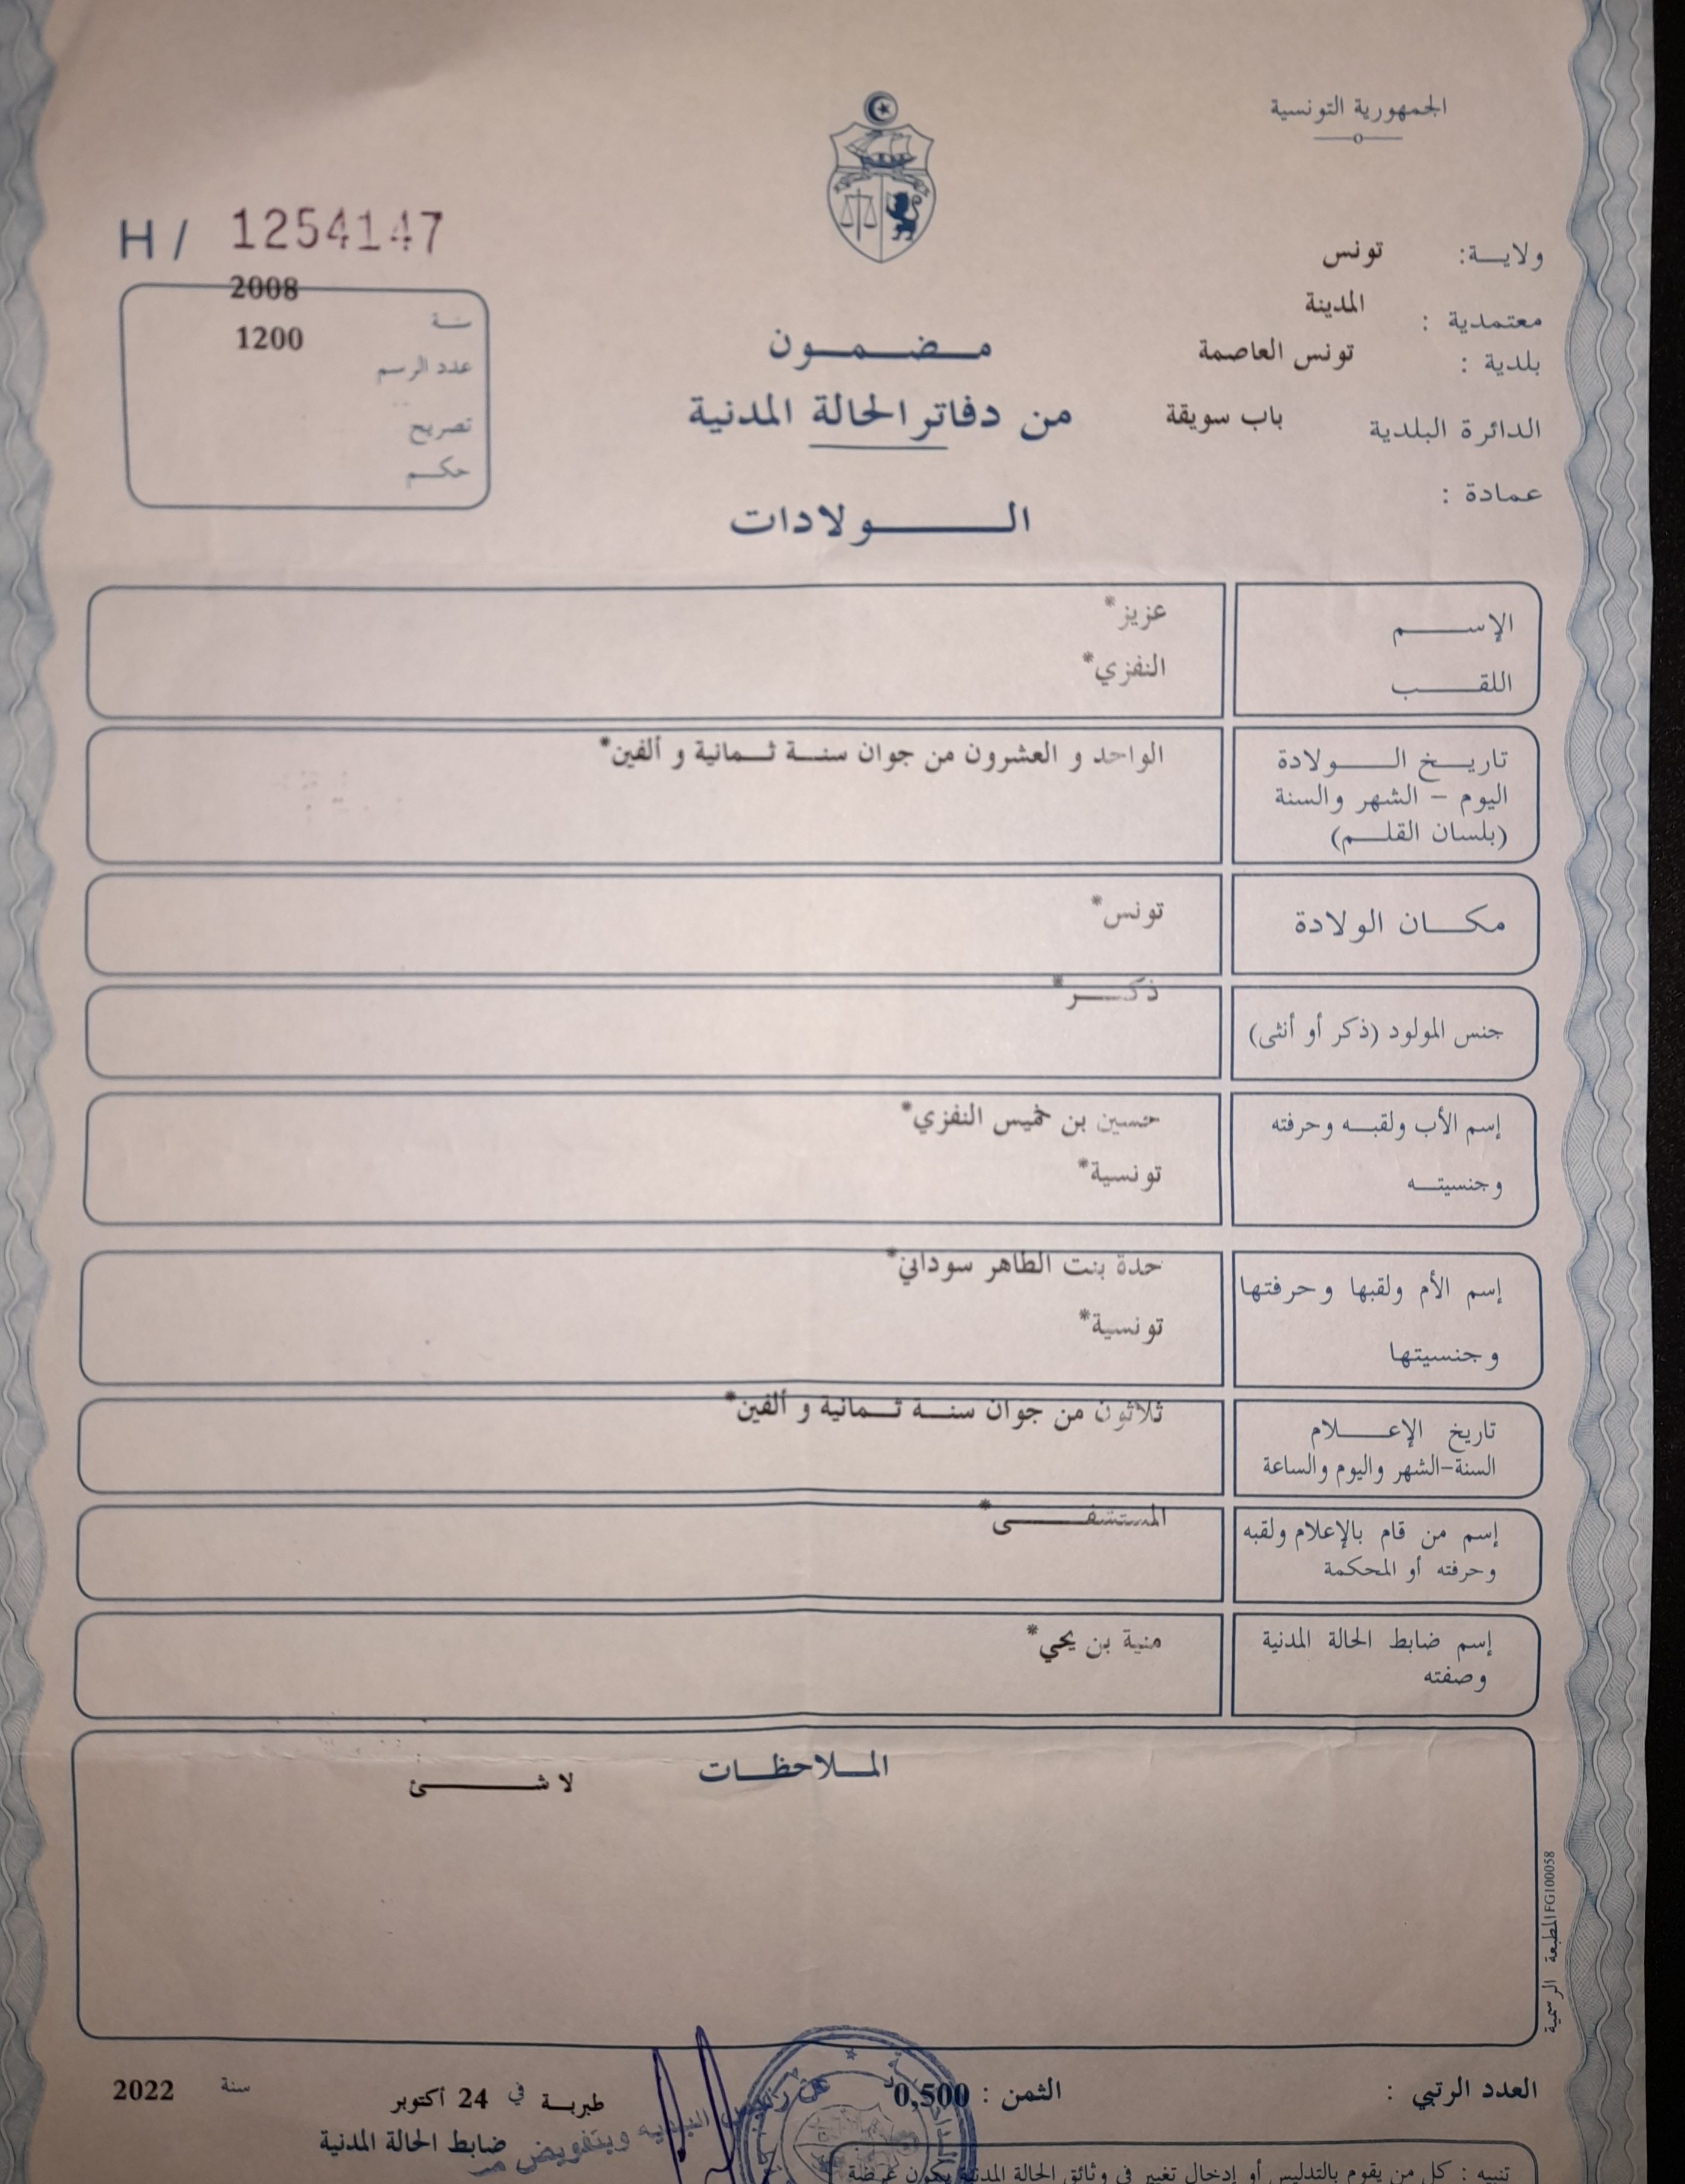 الجمهورية التونسية
ولاية: تونس
معتمدية : المدينة
بلدية : تونس العاصمة
الدائرة البلدية باب سويقة
عمادة :
H / 1254147
سنة 2008
عدد الرسم 1200
تصريح
حكم
مضمون
من دفاتر الحالة المدنية
الولادات
الإسم عزيز*
اللقب النفزي*
تاريخ الولادة الواحد و العشرون من جوان سنة ثمانية و ألفين*
اليوم – الشهر والسنة
(بلسان القلم)
مكان الولادة تونس*
جنس المولود (ذكر أو أنثى) ذكر*
إسم الأب ولقبه وحرفته حسين بن خميس النفزي*
وجنسيته تونسية*
إسم الأم ولقبها وحرفتها حدة بنت الطاهر سوداني*
وجنسيتها تونسية*
تاريخ الإعلام ثلاثون من جوان سنة ثمانية و ألفين*
السنة-الشهر واليوم والساعة
إسم من قام بالإعلام ولقبه المستشفى*
وحرفته أو المحكمة
إسم ضابط الحالة المدنية منية بن يحي*
وصفته
الملاحظات
لا شئ
المطبعة الرسمية FG100058
العدد الرتبي :
الثمن : 0,500د
طبربة في 24 أكتوبر سنة 2022
ضابط الحالة المدنية
عن رئيس البلدية وبتفويض منه
تنبيه : كل من يقوم بالتدليس أو إدخال تغيير في وثائق الحالة المدنية يكون عرضة